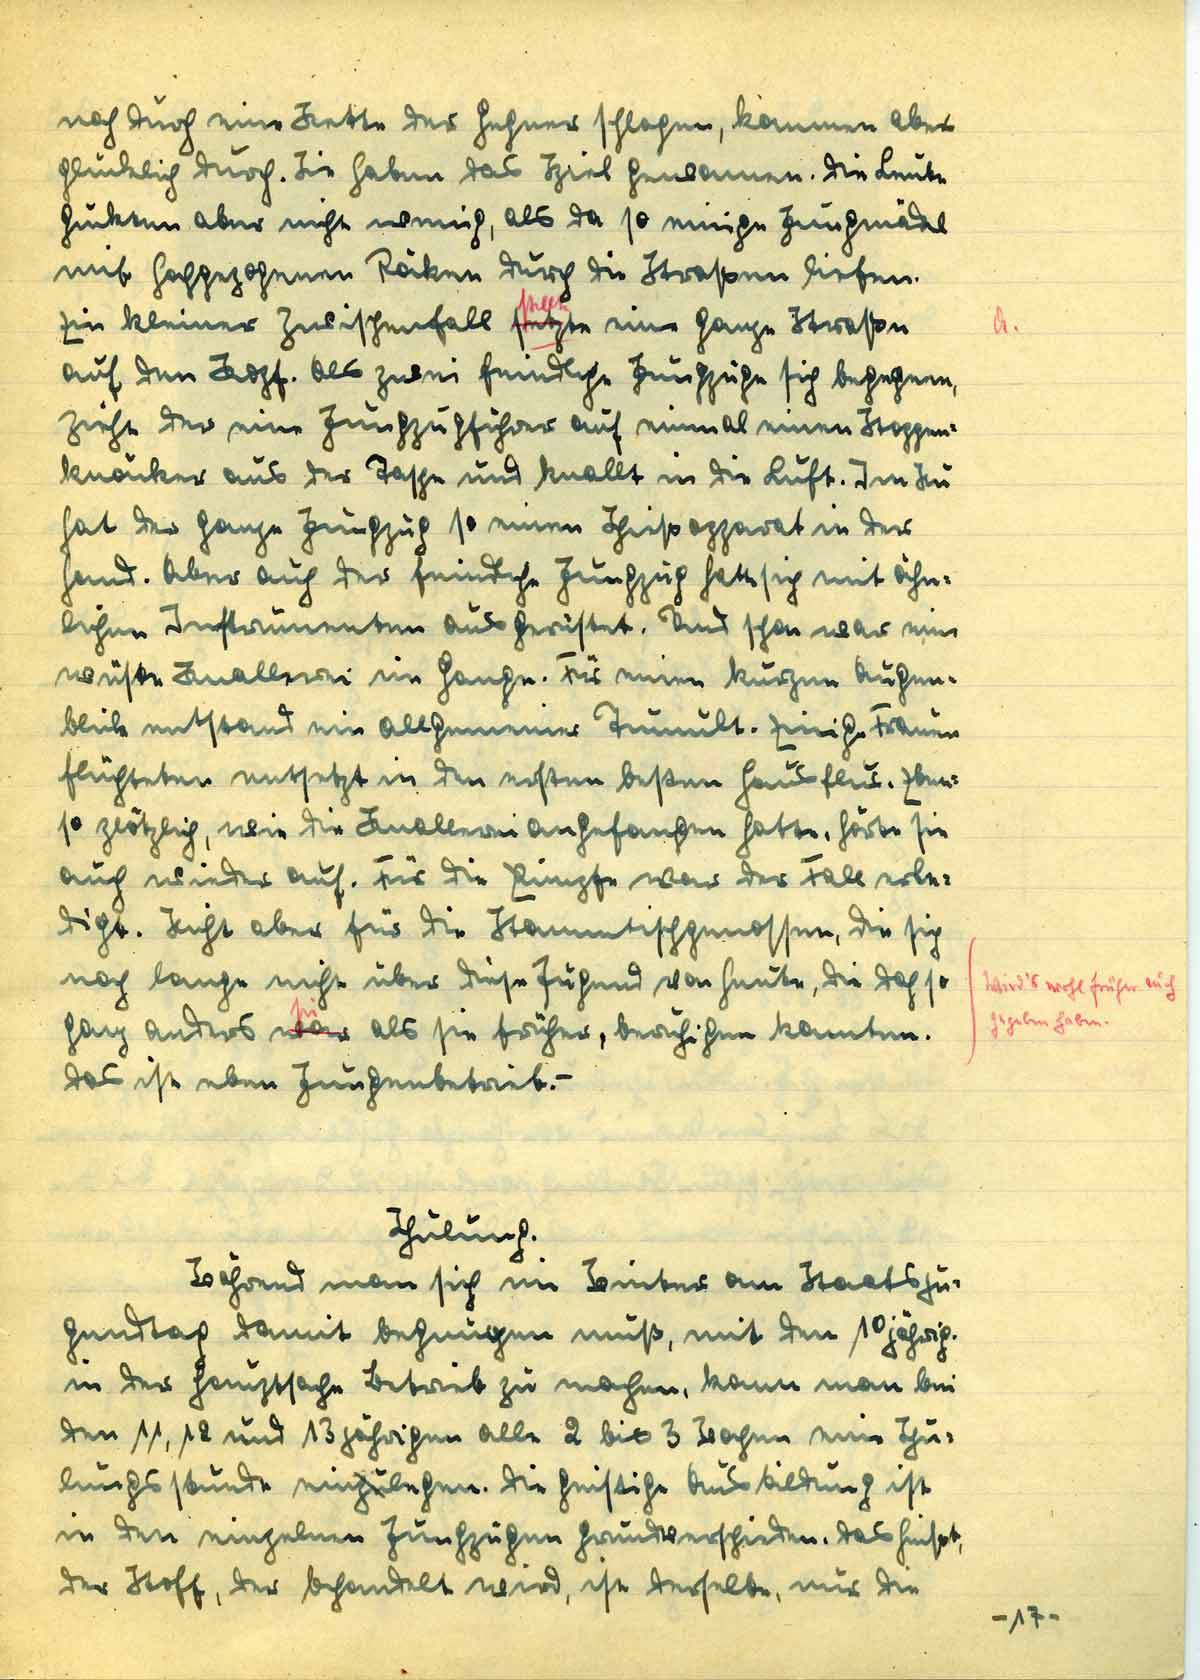 noch durch eine Kette der Gegner schlagen, kommen aber
glücklich durch. Sie haben das Spiel gewonnen. Die Leute
guckten aber nicht wenig, als da so einige Jungmädel
mit hochgezogenen Röcken durch die Strassen liefen.
Ein kleiner Zwischenfall setzte eine ganze Strasse
stellte
A.
auf den Kopf. Als zwei feindliche Jungzüge sich begegnen,
zieht der eine Jungzugführer auf einmal einen Stoppen=
knacker aus der Tasche und knallt in die Luft. Im Nu
hat der ganze Jungzug so einen Schiessapparat in der
Hand. Aber auch der feindliche Jungzug hatte sich mit ähn=
lichen Instrumenten ausgerüstet. Und schon war eine
wüste Knallerei im Gange. Für einen kurzen Augen=
blick entstand ein allgemeiner Tumult. Einige Frauen
flüchteten entsetzt in den ersten besten Hausflur. Eben=
so plötzlich, wie die Knallerei angefangen hatte, hörte sie
auch wieder auf. Für die Pimpfe war der Fall erle=
digt. Nicht aber für die Stammtischgenossen, die sich
noch lange nicht über diese Jugend von heute, die doch so
ganz anders war als sie früher, beruhigen konnten.
sei
wird's wohl früher auch
gegeben haben.
Das ist eben Jungenbetrieb.–
Schulung.
Während man sich im Winter am Staatsju=
gendtag damit begnügen muß, mit den 10jährig.
in der Hauptsache Betrieb zu machen, kann man bei
den 11, 12 und 13jährigen alle 2 bis 3 Wochen eine Schu=
lungsstunde einzulegen. Die geistige Ausbildung ist
in den einzelnen Jungzügen grundverschieden. Das heisst,
der Stoff, der behandelt wird, ist derselbe, nur die
-17-